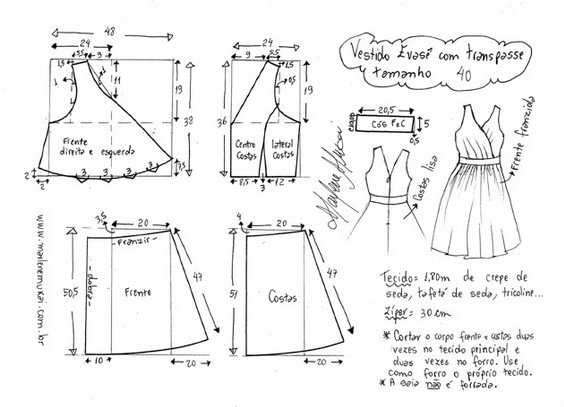 Vestido Evasê com transpasse
tamanho 40
48
24
5,5
9
1,5
1
11
19
38
Frente
direita e esquerda
3
3
3
3
3,5
2
2
24
9
5,5
1,5
0,5
19
36
Centro
Costas
lateral
Costas
8,5
3
12
20,5
CÓS F e C
5
0,5
Marlene Mukai
Costas lisa
Frente franzida
3,5
20
- Franzir -
- dobra -
Frente
47
50,5
10
20
4
20
Costas
47
51
20
www.marlenemukai.com.br
Tecido = 1,80m de crepe de
seda, tafetá de seda, tricoline...
Zíper = 30 cm
* Cortar o corpo frente e costas duas
vezes no tecido principal e
duas vezes no forro. Use
como forro o próprio tecido.
* A saia não é forrada.